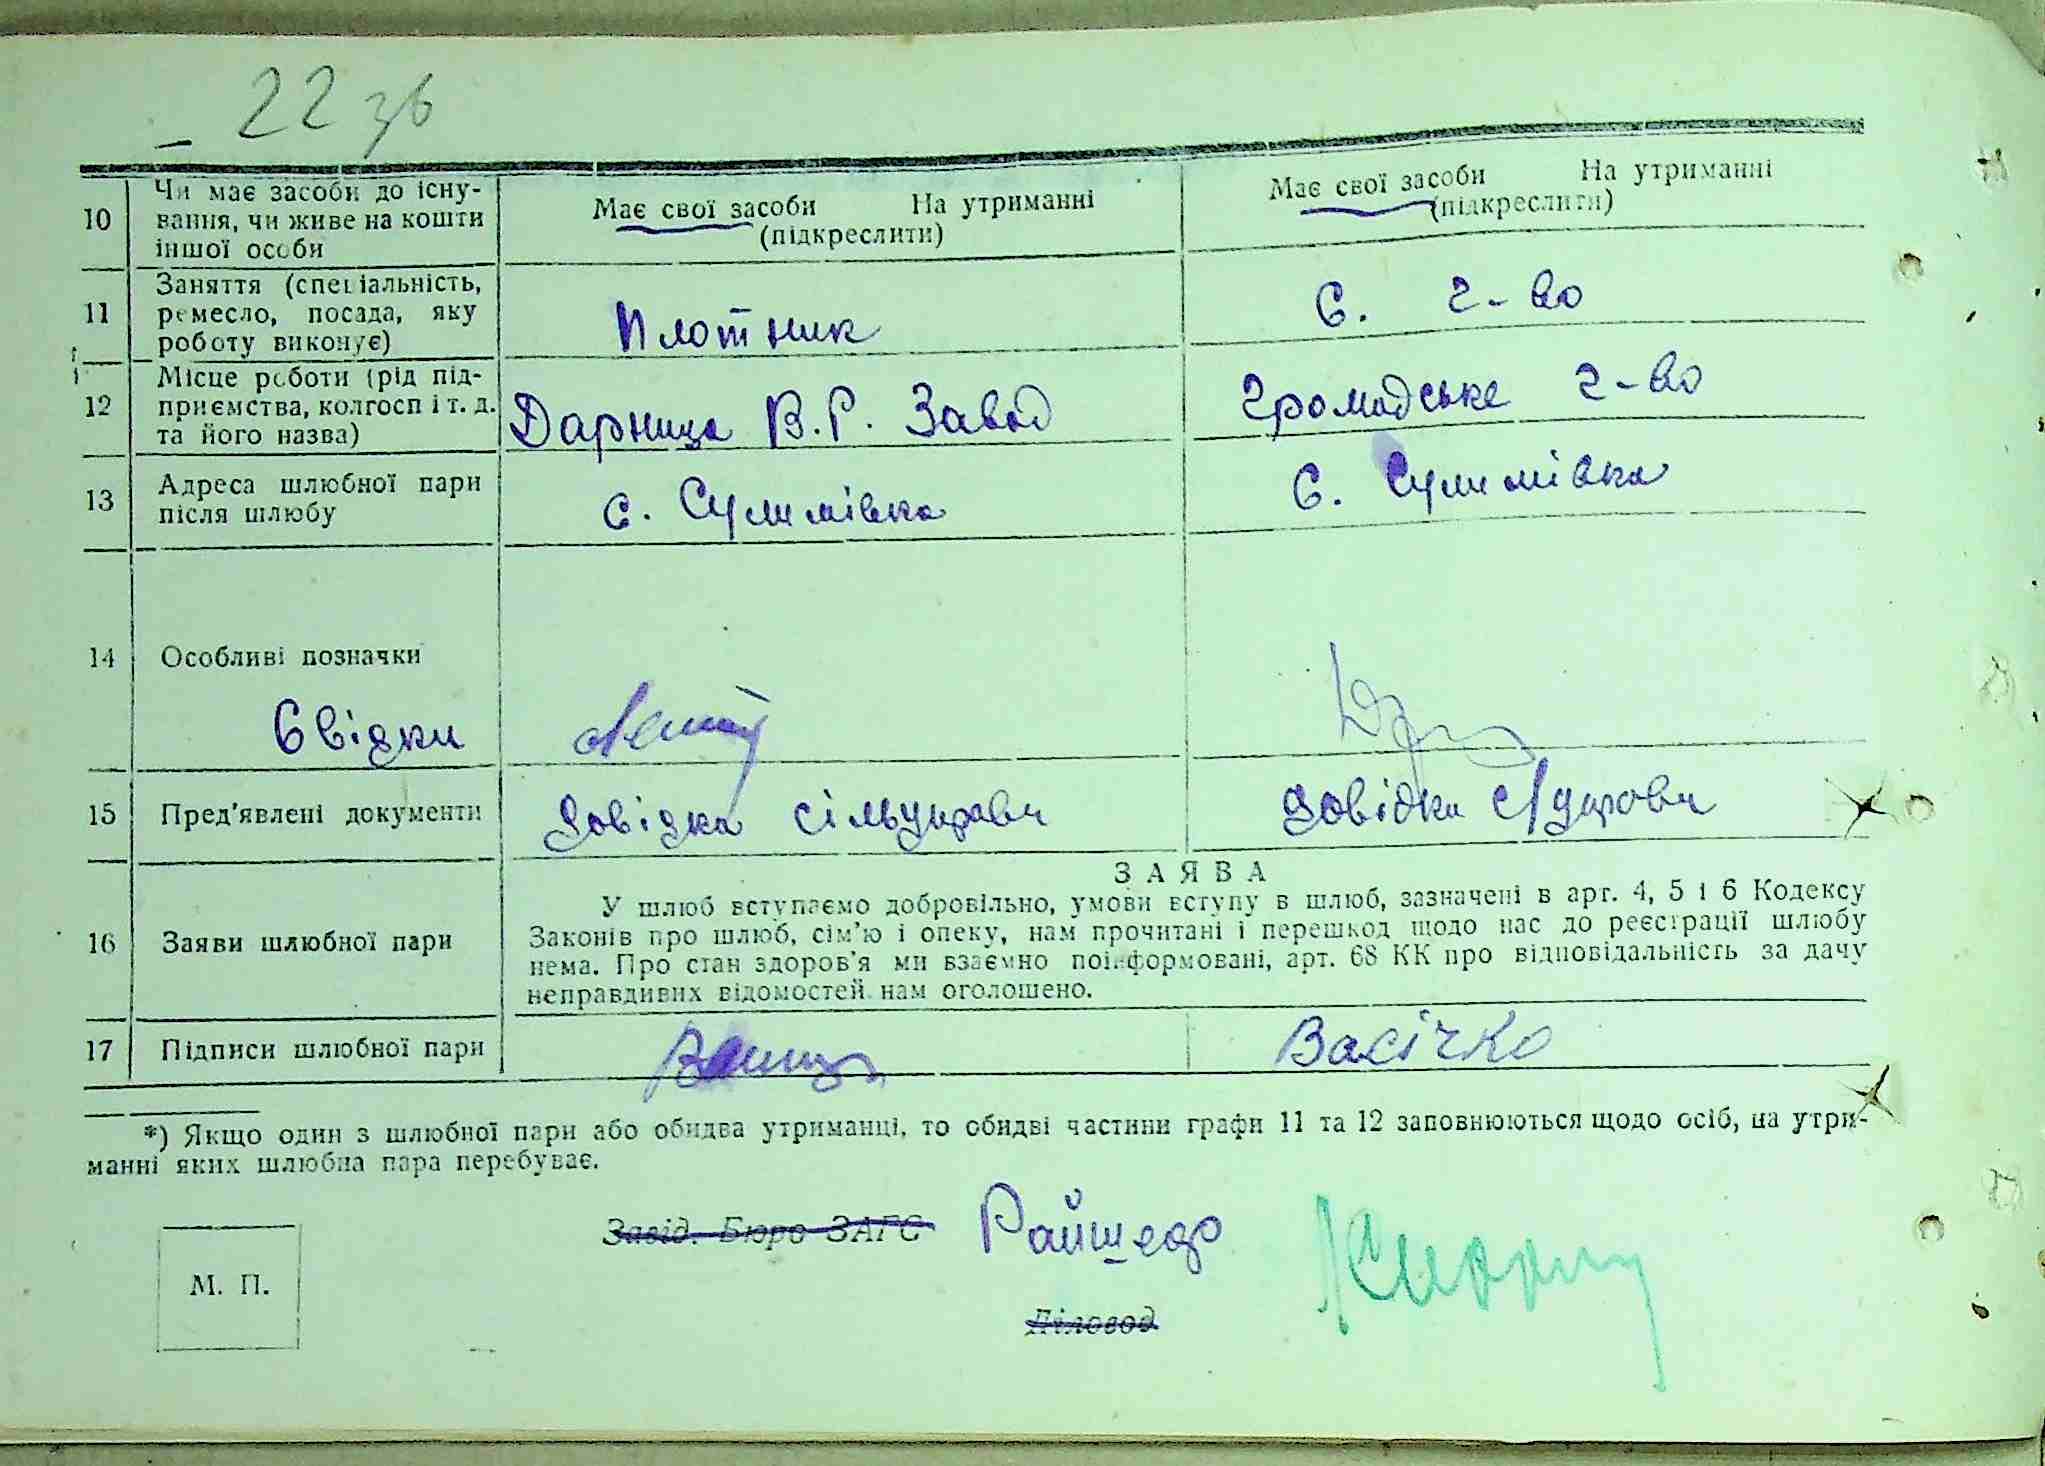 22 зв
10 Чи має засоби до існу-
вання, чи живе на кошти
іншої особи
Має свої засоби На утриманні
(підкреслити)
Має свої засоби На утриманні
(підкреслити)
11 Заняття (спеціальність,
ремесло, посада, яку
роботу виконує)
Плотник
С. г-во
12 Місце роботи (рід під-
приємства, колгосп і т. д.
та його назва)
Дарница В.Р. Завод
Громадське г-во
13 Адреса шлюбної пари
після шлюбу
с. Сулимівка
С. Сулимівка
14 Особливі позначки
Свідки
15 Пред'явлені документи
Довідка сільуправи
Довідка с/управи
16 Заяви шлюбної пари
ЗАЯВА
У шлюб вступаємо добровільно, умови вступу в шлюб, зазначені в арт. 4, 5 і 6 Кодексу
Законів про шлюб, сім'ю і опеку, нам прочитані і перешкод щодо нас до реєстрації шлюбу
нема. Про стан здоров'я ми взаємно поінформовані, арт. 68 КК про відповідальність за дачу
неправдивих відомостей нам оголошено.
17 Підписи шлюбної пари
Васічко
*) Якщо один з шлюбної пари або обидва утриманці, то обидві частини графи 11 та 12 заповнюються щодо осіб, на утри-
манні яких шлюбна пара перебуває.
Завід. Бюро ЗАГС
М. П.
Діловод